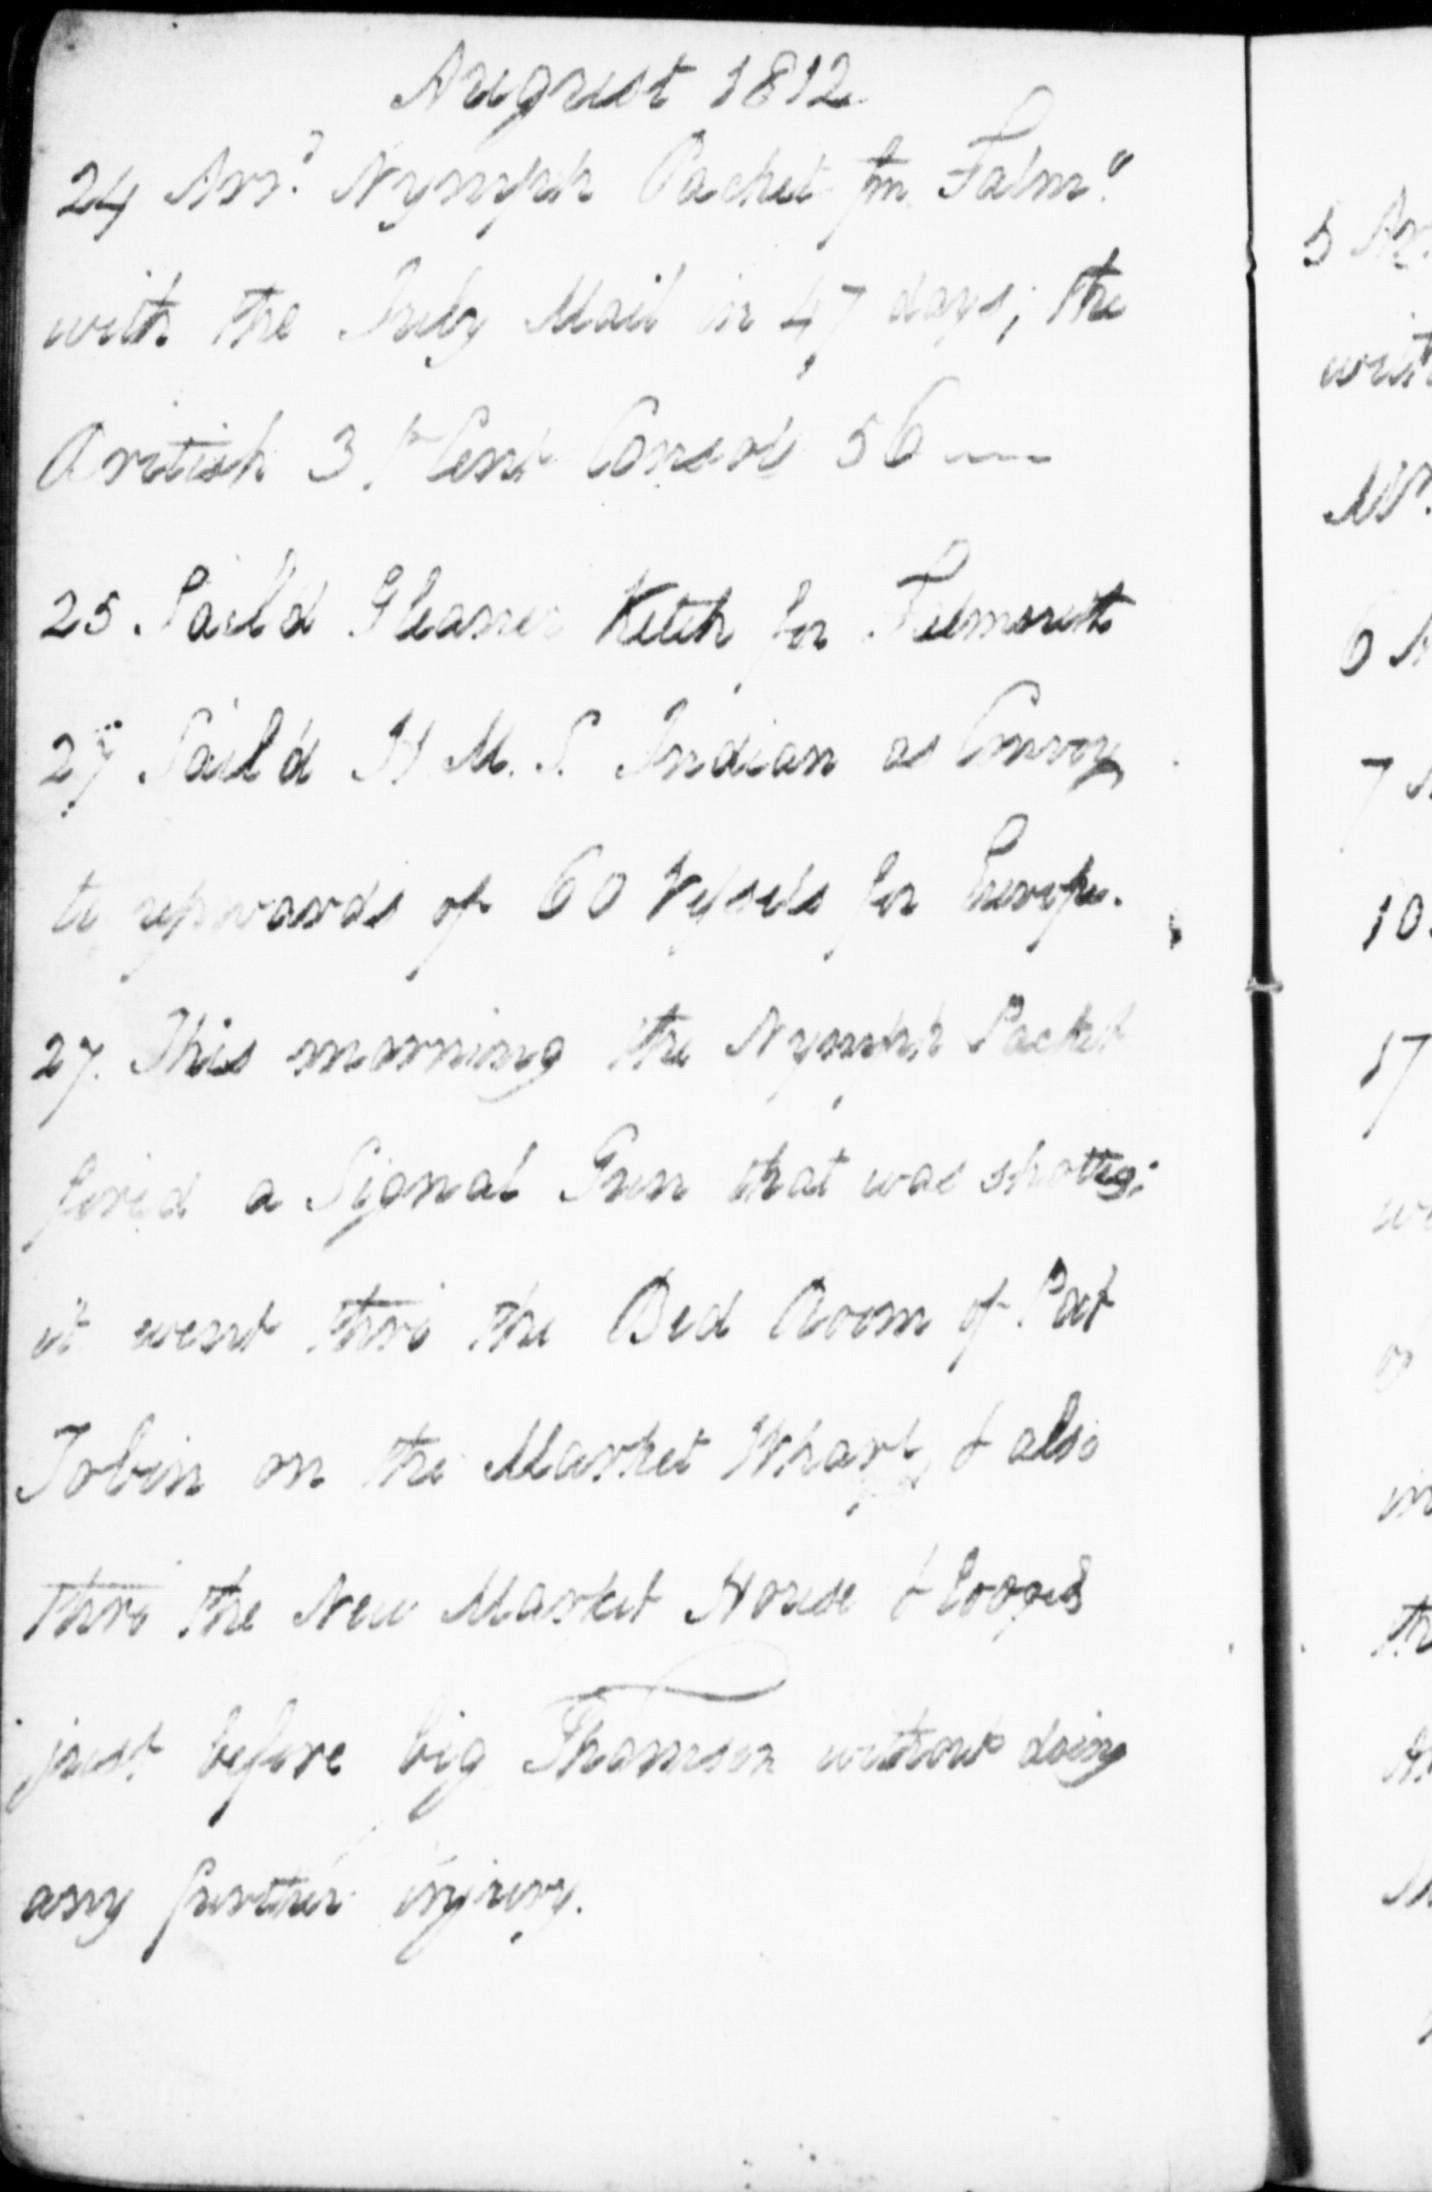 August 1812
24 Arrd Nymph Packet fm Falmo
with the July Mail in 47 days; the
British 3 pr Cent Consols 56
25. Sail'd Gleaner Ketch for Falmouth
27 Sail'd H. M. S. Indian as Convoy
to upwards of 60 Vessels for Europe.
27. This morning the Nymph Packet
fired a Signal Gun that was shotted;
it went thro the Bed Room of Pat
Tobin on the Market Wharf, & also
thro the New Market House & lodged
just before big Thomson without doing
any further injury.
5
with
Mr.
6
7
10.
17
of
in